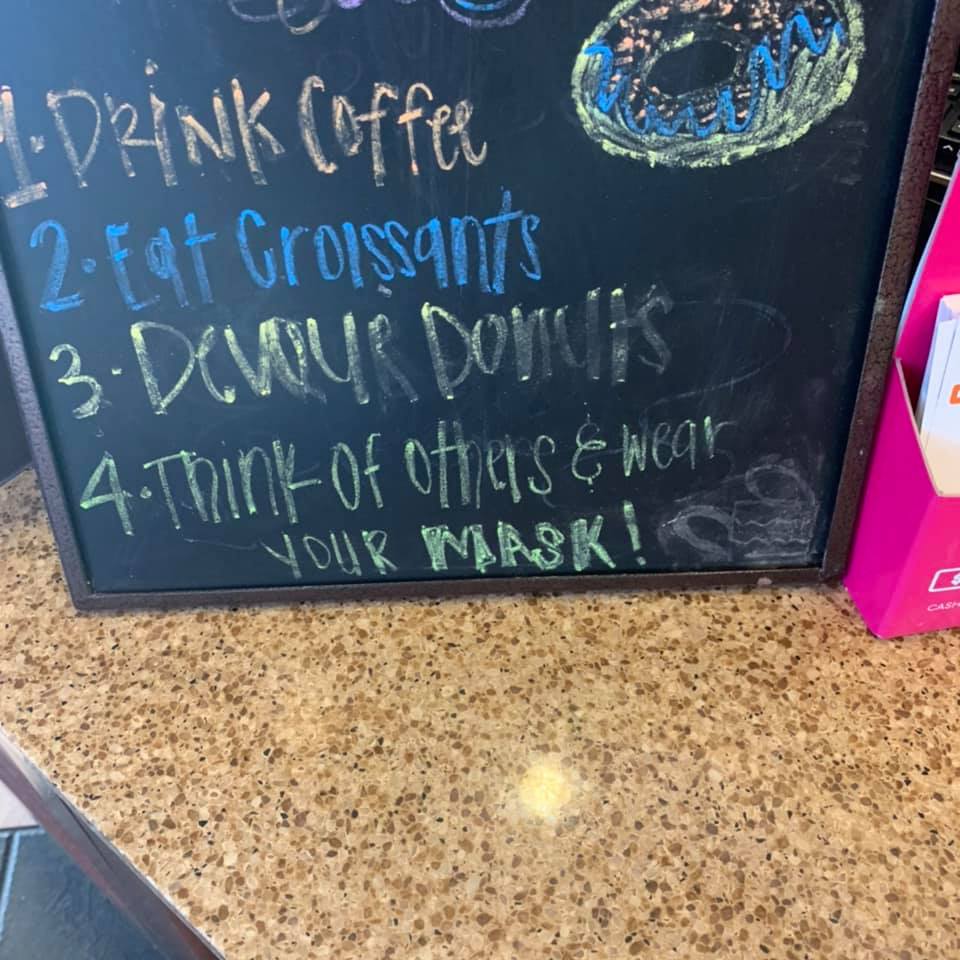 1. DRINK Coffee
2. Eat Croissants
3. Devour Donuts
4. Think of others & wear
YOUR MASK!
CASH